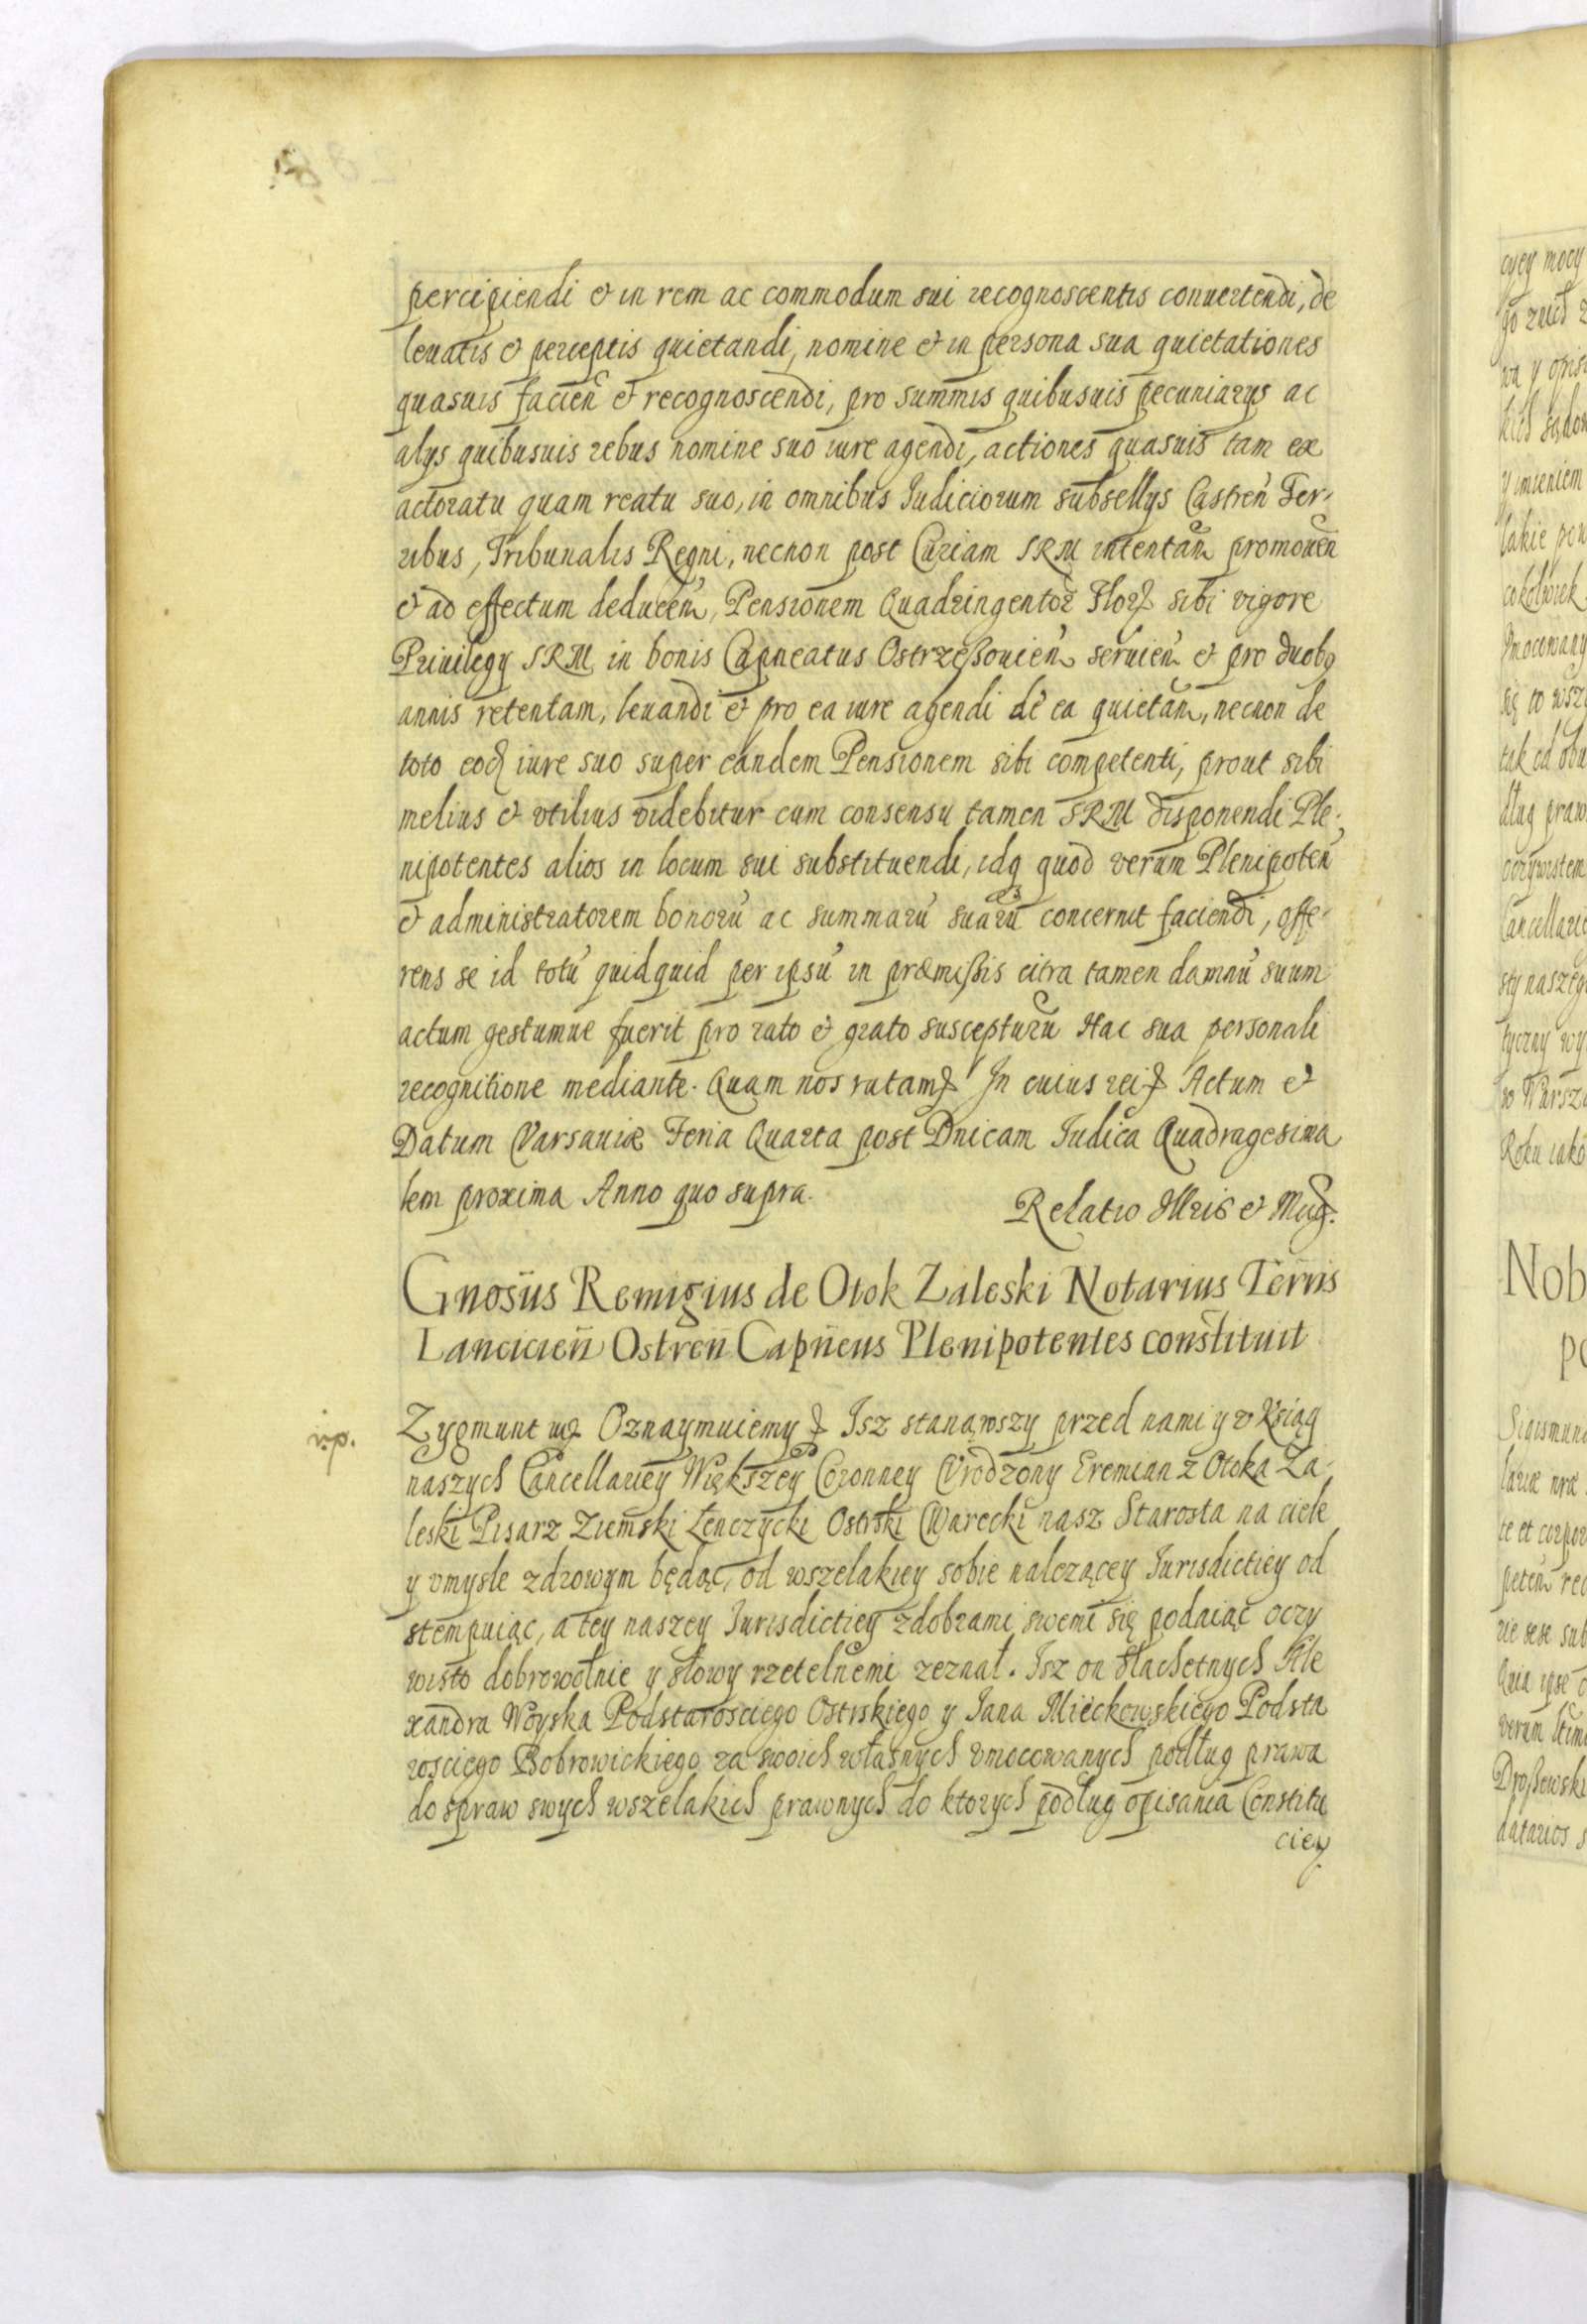 percipiendi & in rem ac commodum sui recognoscentis conuertendi, de
leuatis & perceptis quietandi, nomine & in persona sua quietationes
quasuis facień & recognoscendi, pro summis quibusuis pecuniarys ac
alys quibusuis rebus nomine suo iure agendi, actiones quasuis tam ex
actoratu quam reatu suo, in omnibus Iudiciorum subsellys Castreń Ter-
ribus, Tribunalis Regni, necnon post Curiam SRM intentań promoueń
& ad effectum deduceń, Pensionem Quadringentor Flor sibi vigore
Priuilegy SRM in bonis Capneatus Ostrzeßouień seruień & pro duobq
annis retentam, leuandi & pro ea iure agendi de ea quietań, necnon de
toto eod iure suo super eandem Pensionem sibi competenti, prout sibi
melius & vtilius videbitur cum consensu tamen SRM disponendi Ple-
nipotentes alios in locum sui substituendi, idq quod verum Plenipoteń
& administratorem bonorū ac summarū suarū concernit faciendi, offe-
rens se id totū quidquid per ipsū in præmißis citra tamen damnū suum
actum gestumue fuerit pro rato & grato suscepturū Hac sua personali
recognitione mediante. Quam nos ratam In cuius rei Actum &
Datum Varsauiæ Feria Quarta post Dnicam Iudica Quadragesima
lem proxima Anno quo supra.
Relatio Illris & Mag.
Gnosus Remigius de Otok Zaleski Notarius Terris
Lancicień Ostreń Capneus Plenipotentes constituit
Zygmunt Oznaymuiemy Isz stanąwszy przed nami y v Xsiąg
naszych Cancellariey Większey Coronney Vrodzony Eremian z Otoka Za-
leski Pisarz Ziemski Łenczycki Ostrski Warecki nasz Starosta na ciele
y vmysle zdrowym będąc, od wszelakiey sobie nalezącey Iurisdictiey od
stempuiąc, a tey naszey Iurisdictiey zdobrami swemi się podaiąc oczy
wisto dobrowolnie y słowy rzetelnemi zeznał. Isz on ßlachetnych Ale
xandra Woyska Podstarosciego Ostrskiego y Iana Miečkowskiego Podsta
rosciego Bobrowickiego za swoich własnych vmocowanych podług prawa
do spraw swych wszelakich prawnych do ktorych podług opisania Constitu
ciey